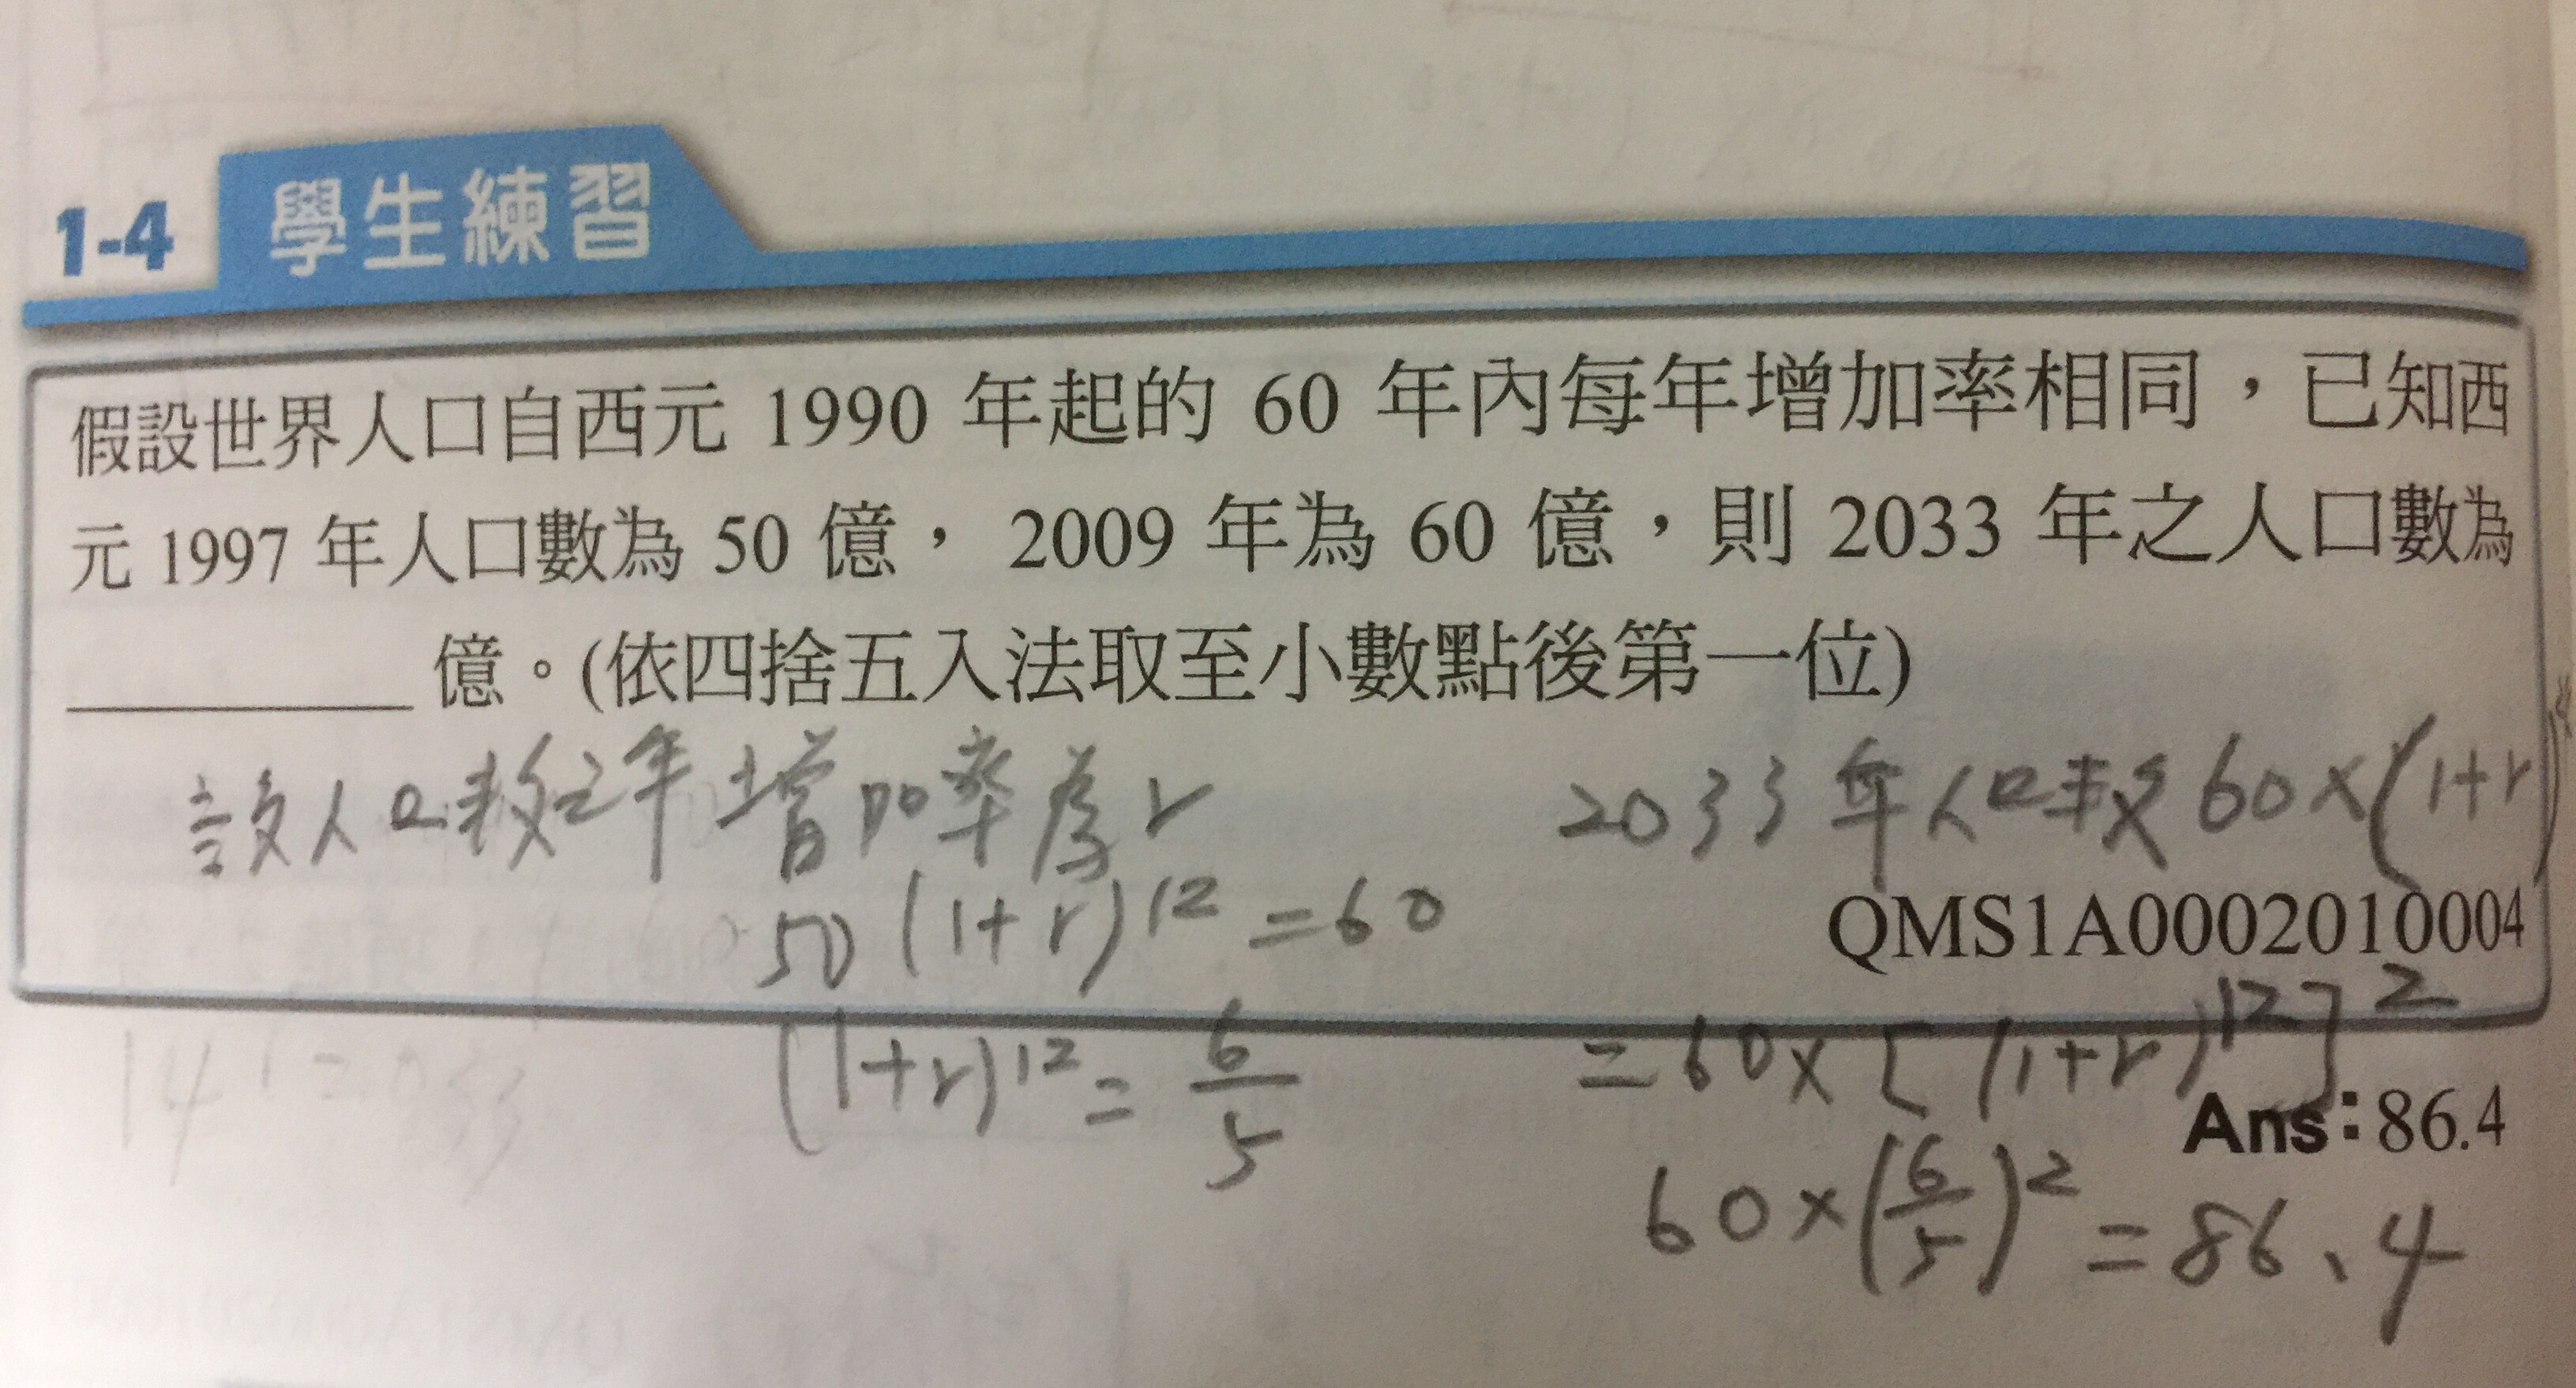 1-4 學生練習
假設世界人口自西元 1990 年起的 60 年內每年增加率相同，已知西
元 1997 年人口數為 50 億， 2009 年為 60 億，則 2033 年之人口數為
________ 億。(依四捨五入法取至小數點後第一位)
設人口數之年增加率為r
50(1+r)^12=60
(1+r)^12=6/5
2033年人口數60×(1+r)
QMS1A0002010004
=60×[(1+r)^12]^2
Ans：86.4
60×(6/5)^2=86.4